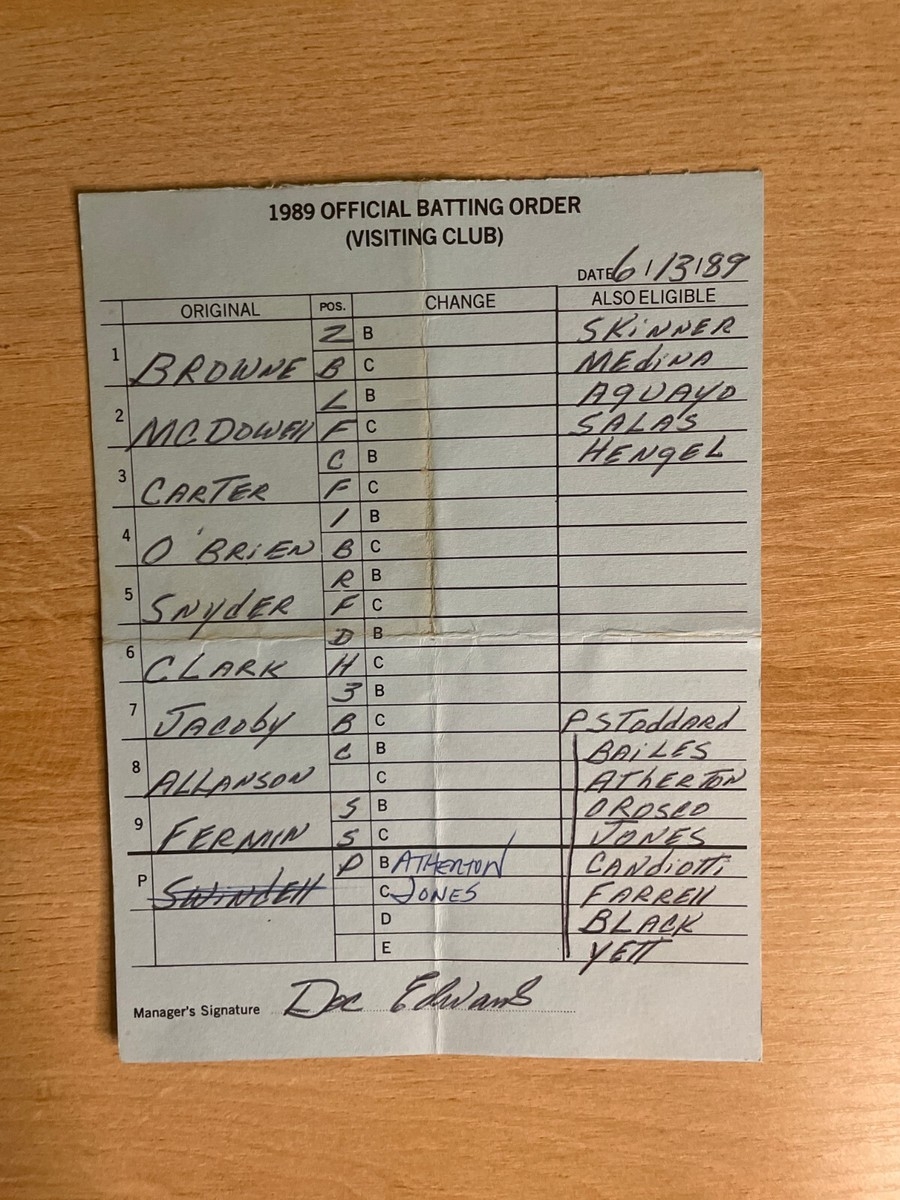 1989 OFFICIAL BATTING ORDER
(VISITING CLUB)
DATE 6/13/89
ORIGINAL POS. CHANGE ALSO ELIGIBLE
2 B SKINNER
1 BROWNE B C MEDINA
L B AGUAYO
2 MCDOWELL F C SALAS
C B HENGEL
3 CARTER F C
1 B
4 O'BRIEN B C
R B
5 SNYDER F C
D B
6 CLARK H C
3 B
7 JACOBY B C P STODDARD
C B BAILES
8 ALLANSON C ATHERTON
S B OROSCO
9 FERMIN S C JONES
P B ATHERTON CANDIOTTI
P SWINDELL C JONES FARRELL
D BLACK
E YETT
Manager's Signature Doc Edwards